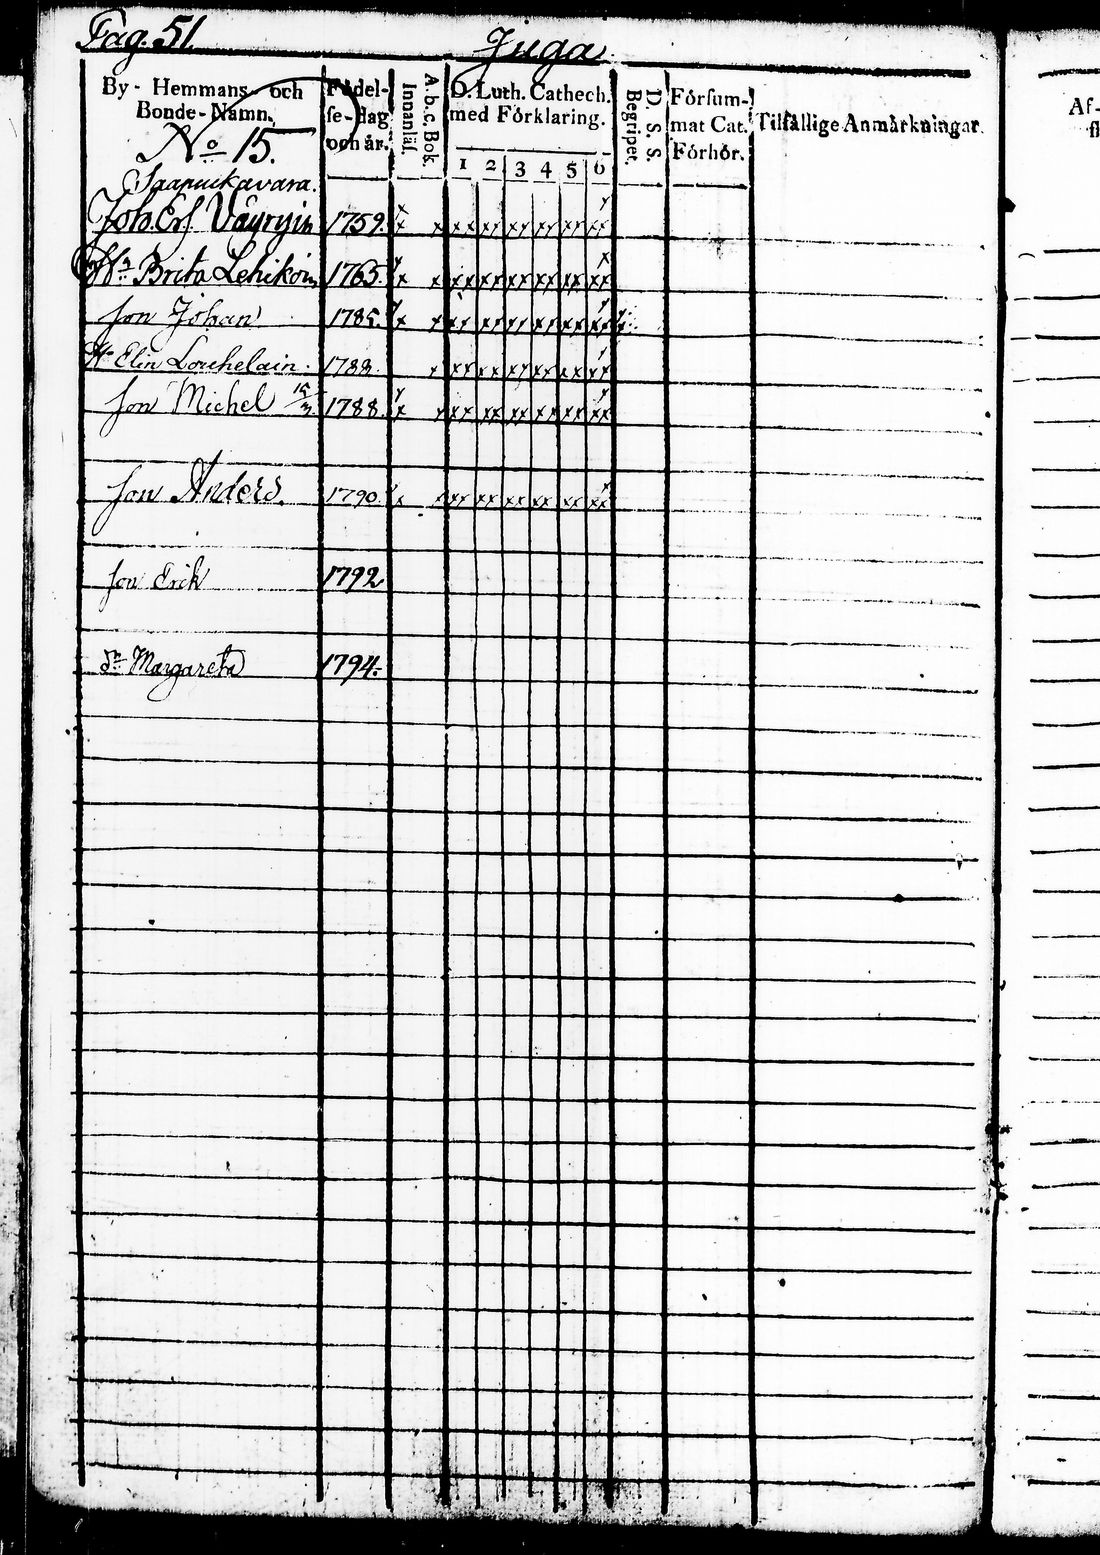 Pag. 51.
Juga
By- Hemmans- och Bonde-Namn.
Födel-se-dag och år.
Innanläs.
A.b.c. Bok.
D. Luth. Cathech. med Förklaring.
1 2 3 4 5 6
Begripet.
D. S. S.
Försum-mat Cat. Förhör.
Tilfällige Anmärkningar
No 15.
Saapuikavara.
Joh. Ers. Väyryin 1759.
Hu Brita Lehikoin 1765.
Son Johan 1785.
Hu Elin Louhelain. 1788
Son Michel 15/3 1788.
Son Anders. 1790.
Son Erik 1792
Dr Margareta 1794.
Af-